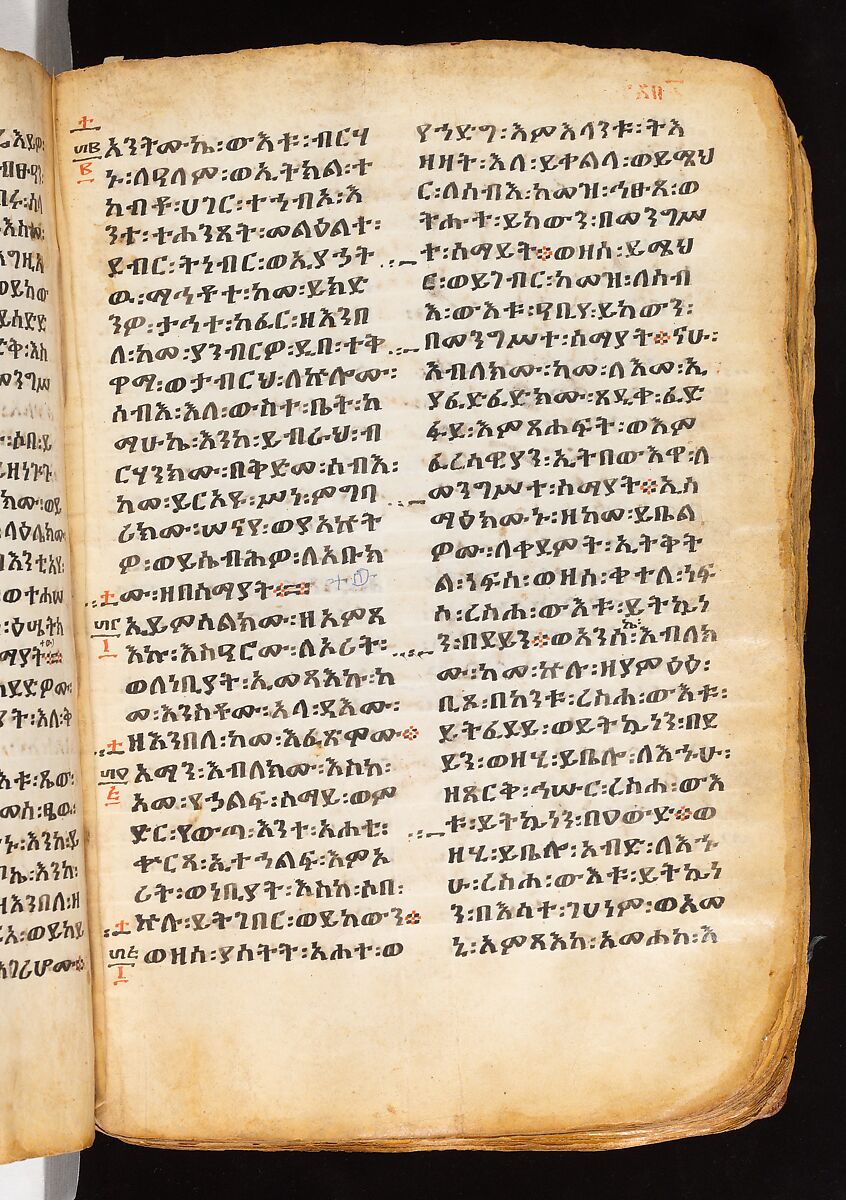 አንትሙኬ፡ውእቱ፡ብርሃ
ኑ፡ለዓለም፡ወኢትክል፡ተ
ከብቶ፡ሀገር፡ተኀብኦ፡እ
ንተ፡ተሐንጸት፡መልዕልተ፡
ደብር፡ትነብር፡ወኢያኀት
ዉ፡ማኅቶተ፡ከመ፡ይክድ
ንዎ፡ታኅተ፡ከፈር፡ዘእንበ
ለ፡ከመ፡ያንብርዎ፡ዲበ፡ተቅ
ዋማ፡ወታብርህ፡ለኵሎሙ፡
ሰብእ፡እለ፡ውስተ፡ቤት፡ከ
ማሁኬ፡እንከ፡ይብራህ፡ብ
ርሃንክሙ፡በቅድመ፡ሰብእ፡
ከመ፡ይርአዩ፡ሥነ፡ምግባ
ሪክሙ፡ሠናየ፡ወያአኵት
ዎ፡ወይሴብሕዎ፡ለአቡክ
ሙ፡ዘበሰማያት፨
ኢይምሰልክሙ፡ዘአምጻ
እኩ፡እስዓሮሙ፡ለኦሪት፡
ወለነቢያት፡ኢመጻእኩ፡ከ
መ፡እንስቶሙ፡አላ፡ዳእሙ፡
ዘእንበለ፡ከመ፡እፈጽሞሙ፨
አማን፡እብለክሙ፡እስከ፡
አመ፡የኃልፍ፡ሰማይ፡ወም
ድር፡የውጣ፡እንተ፡አሐቲ፡
ቍርጻ፡ኢተኀልፍ፡እምኦ
ሪት፡ወነቢያት፡እስከ፡ሶበ፡
ኵሉ፡ይትገበር፡ወይከውን፨
ወዘሰ፡ያስትት፡አሐተ፡ወ
የኀድግ፡እምእላንቱ፡ትእ
ዘዛት፡እለ፡ይቀልላ፡ወይሜህ
ር፡ለሰብእ፡ከመዝ፡ኅፁጸ፡ወ
ትሑተ፡ይከውን፡በመንግሥ
ተ፡ሰማይት፨ወዘሰ፡ይሜህ
ር፡ወይገብር፡ከመዝ፡ለሰብ
እ፡ውእቱ፡ዓቢየ፡ይከውን፡
በመንግሥተ፡ሰማያት፨ናሁ፡
እብለክሙ፡ከመ፡ለእመ፡ኢ
ያፈድፈድክሙ፡ጸዲቀ፡ፈድ
ፋደ፡እምጸሐፍት፡ወእም
ፈረሳዊያን፡ኢትበውእዋ፡ለ
መንግሥተ፡ሰማያት፨ኢሰ
ማዕክሙኑ፡ዘከመ፡ይቤል
ዎሙ፡ለቀደምት፡ኢትቅት
ል፡ነፍሰ፡ወዘሰ፡ቀተለ፡ነፍ
ሰ፡ረስሐ፡ውእቱ፡ይትኴነ
ን፡በደይን፨ወአንሰኬ፡እብለክ
ሙ፡ከመ፡ኵሉ፡ዘያምዕዕ፡
ቢጾ፡በከንቱ፡ረስሐ፡ውእቱ፡
ይትፈደይ፡ወይትኴነን፡በደ
ይን፡ወዘሂ፡ይቤሎ፡ለእኁሁ፡
ዘጸርቅ፡ኅሡር፡ረስሐ፡ውእ
ቱ፡ይትኴነን፡በዐውድ፨ወ
ዘሂ፡ይቤሎ፡አብድ፡ለእኁ
ሁ፡ረስሐ፡ውእቱ፡ይትኴነ
ን፡በእሳተ፡ገሀነም፡ወእመ
ኒ፡አምጻእከ፡አመሐከ፡እ